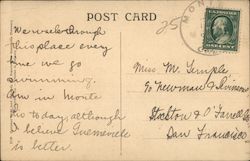 POST CARD
25
MON
ONE CENT
We rode through
this place every
time we go
swimming.
Am in Monte
Rio to day, although
I believe Guerneville
is better.
Miss M. Temple
% Newman & Levinson
Stockton & O'Farrell Sts
San Francisco